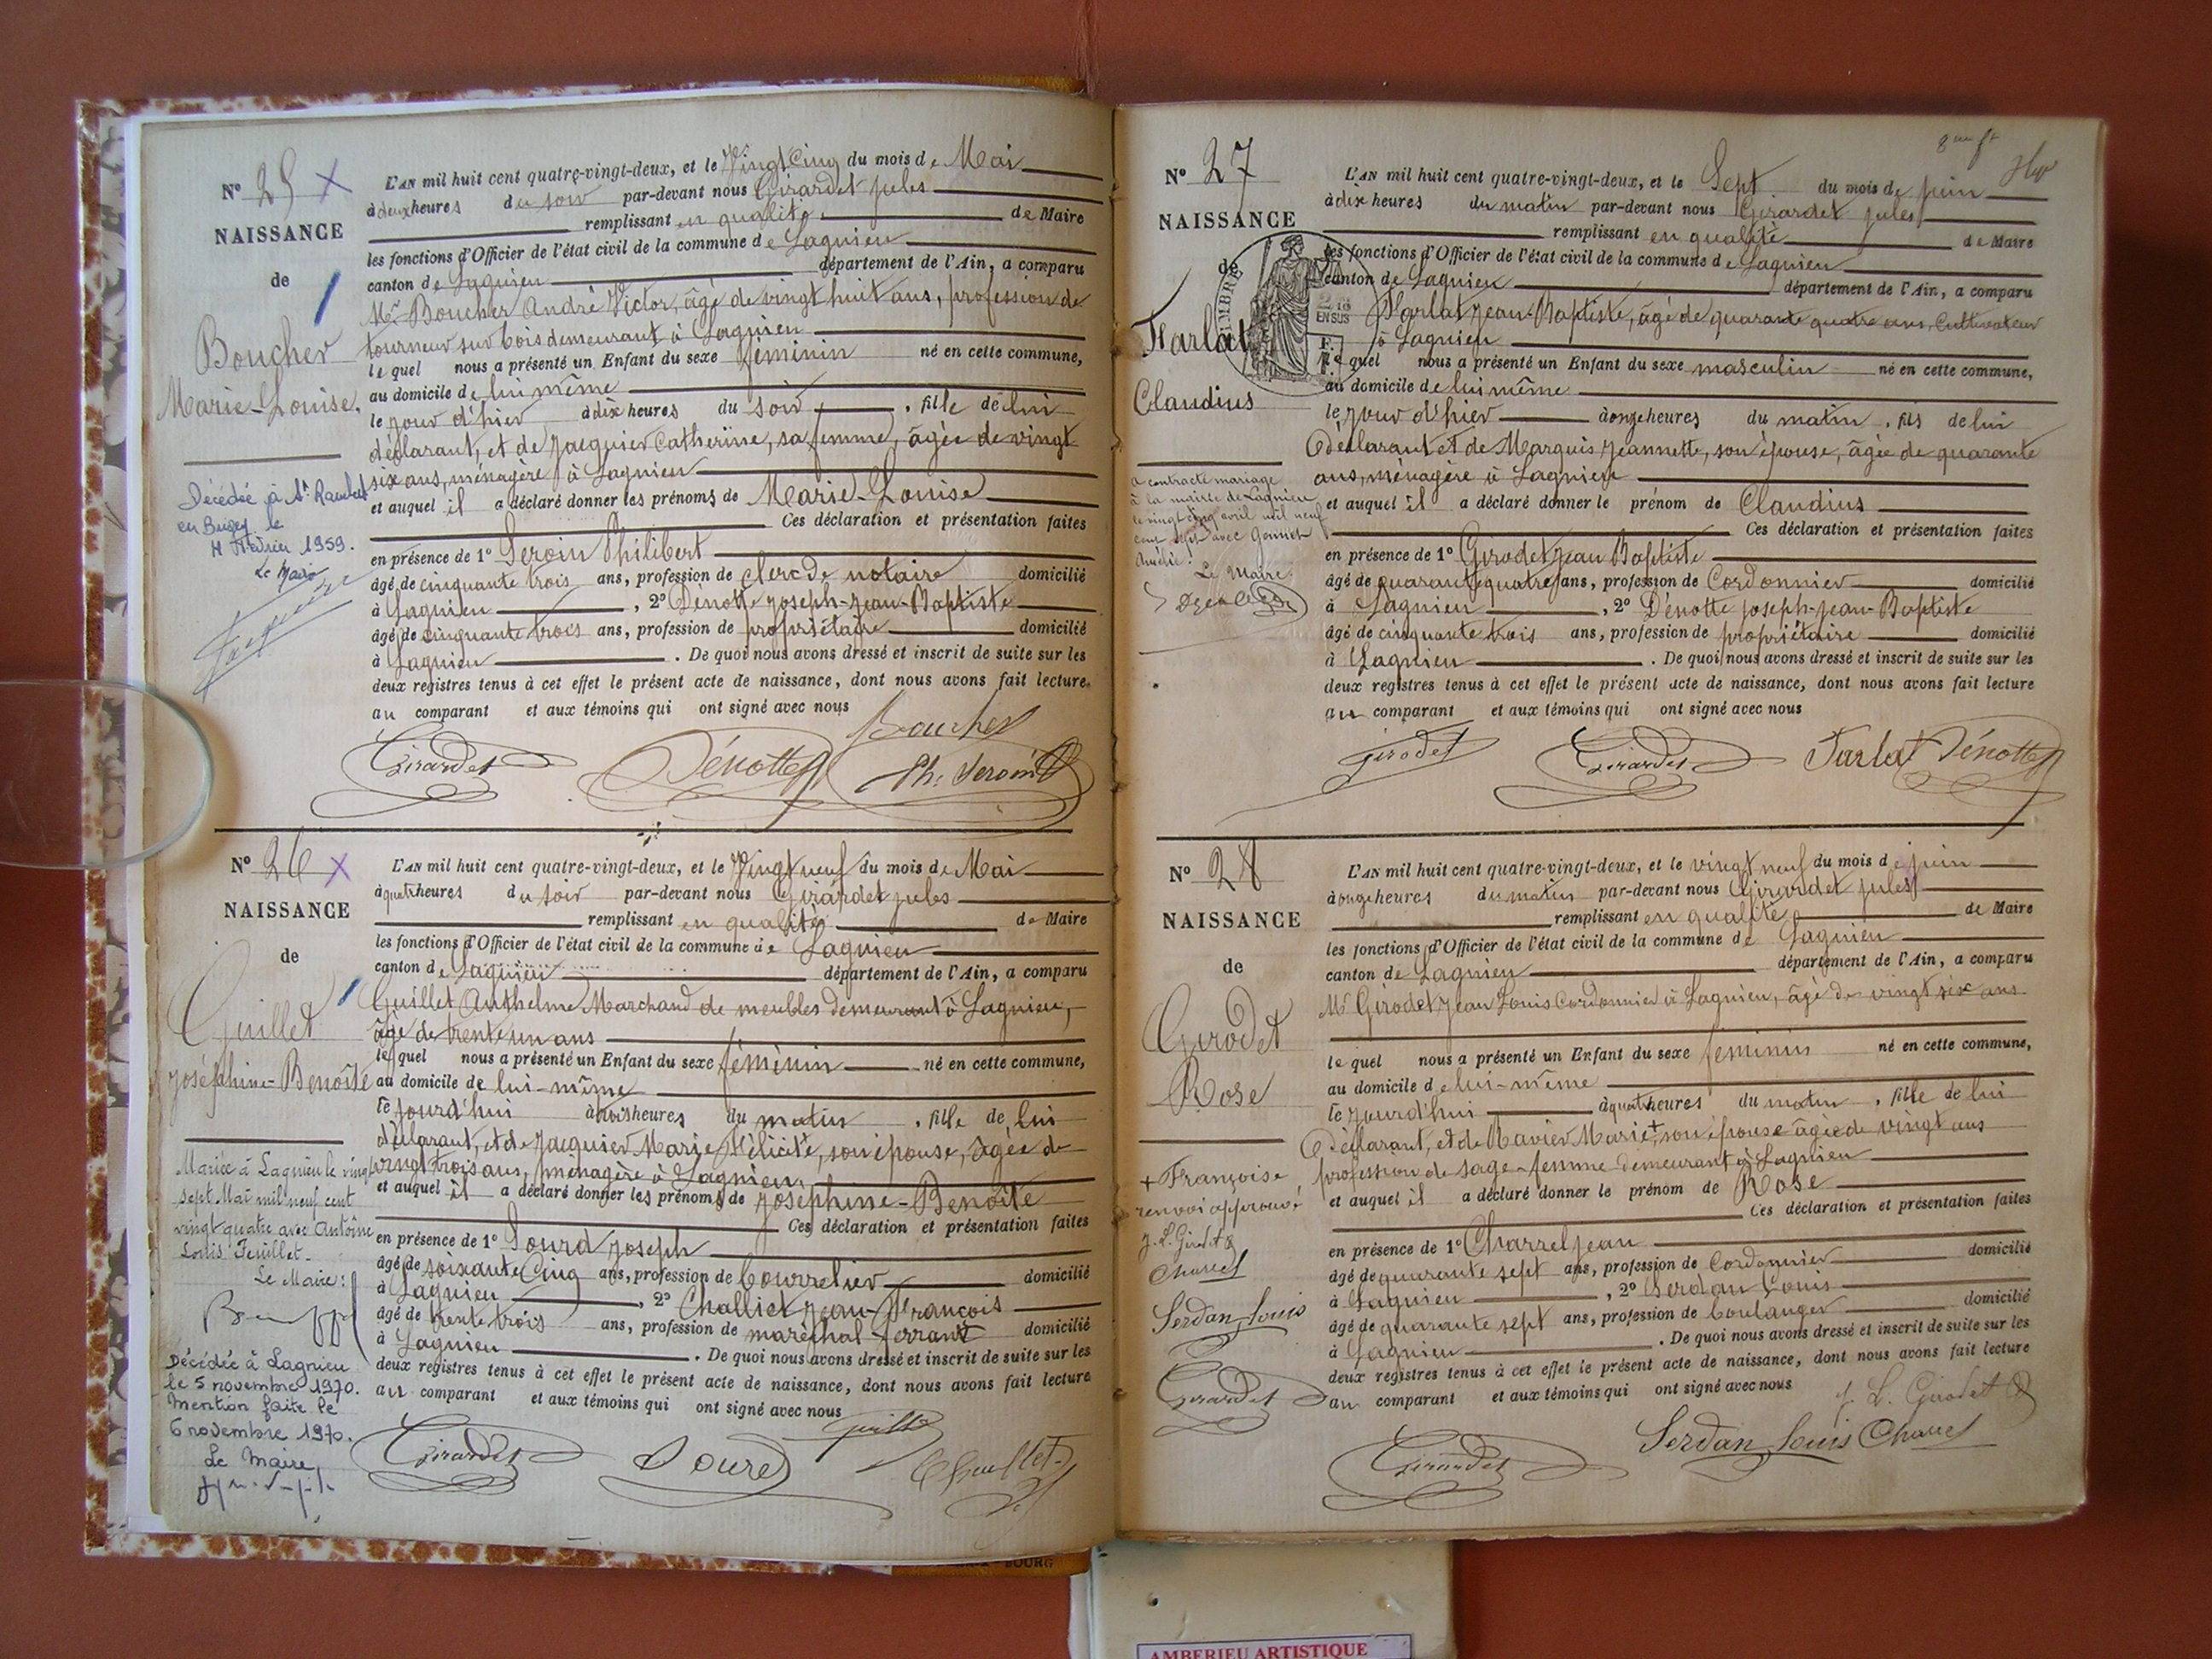 N° 25 X
NAISSANCE
de
Boucher
Marie-Louise.
Décédée à St Rambert
en Bugey le
Février 1959.
Le Maire
L'AN mil huit cent quatre-vingt-deux, et le Vingt Cinq du mois de Mai
à deux heures du soir par-devant nous Girardet Jules
remplissant en qualité de Maire
les fonctions d'Officier de l'état civil de la commune de Lagnieu
canton de Lagnieu département de l'Ain, a comparu
Mr Boucher André Victor, âgé de vingt huit ans, profession de
tourneur sur bois demeurant à Lagnieu
lequel nous a présenté un Enfant du sexe féminin né en cette commune,
au domicile de lui même
le jour d'hier à dix heures du soir, fille de lui
déclarant, et de Jacquier Catherine, sa femme, âgée de vingt
six ans, ménagère à Lagnieu
et auquel il a déclaré donner les prénoms de Marie-Louise
Ces déclaration et présentation faites
en présence de 1° Seroin Philibert
âgé de cinquante trois ans, profession de clerc de notaire domicilié
à Lagnieu, 2° Dénotte Joseph-Jean-Baptiste
âgé de cinquante trois ans, profession de propriétaire domicilié
à Lagnieu. De quoi nous avons dressé et inscrit de suite sur les
deux registres tenus à cet effet le présent acte de naissance, dont nous avons fait lecture
au comparant et aux témoins qui ont signé avec nous
Boucher
Girardet Dénotte Ph. Seroin
N° 26 X
NAISSANCE
de
Guillet
Joséphine-Benoîte
Mariée à Lagnieu le vingt
sept Mai mil neuf cent
vingt quatre avec Antoine
Louis Feuillet.
Le Maire:
Décédée à Lagnieu
le 5 novembre 1970.
Mention faite le
6 novembre 1970.
Le Maire,
L'AN mil huit cent quatre-vingt-deux, et le Vingt neuf du mois de Mai
à quatre heures du soir par-devant nous Girardet Jules
remplissant en qualité de Maire
les fonctions d'Officier de l'état civil de la commune de Lagnieu
canton de Lagnieu département de l'Ain, a comparu
Guillet Anthelme Marchand de meubles demeurant à Lagnieu,
âgé de trente un ans
lequel nous a présenté un Enfant du sexe féminin né en cette commune,
au domicile de lui-même
le jourd'hui à trois heures du matin, fille de lui
déclarant, et de Jacquier Marie Félicité, son épouse, âgée de
vingt trois ans, ménagère à Lagnieu,
et auquel il a déclaré donner les prénoms de Joséphine-Benoîte
Ces déclaration et présentation faites
en présence de 1° Sourd Joseph
âgé de soixante Cinq ans, profession de bourrelier domicilié
à Lagnieu, 2° Challiet Jean-François
âgé de trente trois ans, profession de maréchal ferrant domicilié
à Lagnieu. De quoi nous avons dressé et inscrit de suite sur les
deux registres tenus à cet effet le présent acte de naissance, dont nous avons fait lecture
au comparant et aux témoins qui ont signé avec nous
Guillet
Girardet Sourd
N° 27
NAISSANCE
de
Farlat
Claudius
a contracté mariage
à la mairie de Lagnieu
le vingt cinq avril mil neuf
cent sept avec
Le Maire,
TIMBRE
EN SUS
L'AN mil huit cent quatre-vingt-deux, et le Sept du mois de Juin
à dix heures du matin par-devant nous Girardet Jules
remplissant en qualité de Maire
les fonctions d'Officier de l'état civil de la commune de Lagnieu
canton de Lagnieu département de l'Ain, a comparu
Farlat Jean-Baptiste, âgé de quarante quatre ans, Cultivateur
à Lagnieu
lequel nous a présenté un Enfant du sexe masculin né en cette commune,
au domicile de lui même
le jour d'hier à onze heures du matin, fils de lui
Déclarant et de Marquis Jeannette, son épouse, âgée de quarante
ans, ménagère à Lagnieu
et auquel il a déclaré donner le prénom de Claudius
Ces déclaration et présentation faites
en présence de 1° Girodet Jean Baptiste
âgé de quarante quatre ans, profession de Cordonnier domicilié
à Lagnieu, 2° Dénotte Joseph-Jean-Baptiste
âgé de cinquante trois ans, profession de propriétaire domicilié
à Lagnieu. De quoi nous avons dressé et inscrit de suite sur les
deux registres tenus à cet effet le présent acte de naissance, dont nous avons fait lecture
au comparant et aux témoins qui ont signé avec nous
Girodet Girardet Farlat Dénotte
N° 28
NAISSANCE
de
Girodet
Rose
+ Françoise
renvoi approuvé
J. L. Girodet
Charrel
Serdan Louis
Girardet
L'AN mil huit cent quatre-vingt-deux, et le vingt neuf du mois de juin
à onze heures du matin par-devant nous Girardet Jules
remplissant en qualité de Maire
les fonctions d'Officier de l'état civil de la commune de Lagnieu
canton de Lagnieu département de l'Ain, a comparu
Mr Girodet Jean Louis Cordonnier à Lagnieu, âgé de vingt six ans
lequel nous a présenté un Enfant du sexe féminin né en cette commune,
au domicile de lui-même
le jourd'hui à quatre heures du matin, fille de lui
Déclarant, et de Ravier Marie+, son épouse âgée de vingt ans
profession de sage-femme demeurant à Lagnieu
et auquel il a déclaré donner le prénom de Rose
Ces déclaration et présentation faites
en présence de 1° Charrel Jean
âgé de quarante sept ans, profession de Cordonnier domicilié
à Lagnieu, 2° Serdan Louis
âgé de quarante sept ans, profession de boulanger domicilié
à Lagnieu. De quoi nous avons dressé et inscrit de suite sur les
deux registres tenus à cet effet le présent acte de naissance, dont nous avons fait lecture
au comparant et aux témoins qui ont signé avec nous
J. L. Girodet
Girardet Serdan Louis Charrel
BOURG
AMBERIEU ARTISTIQUE